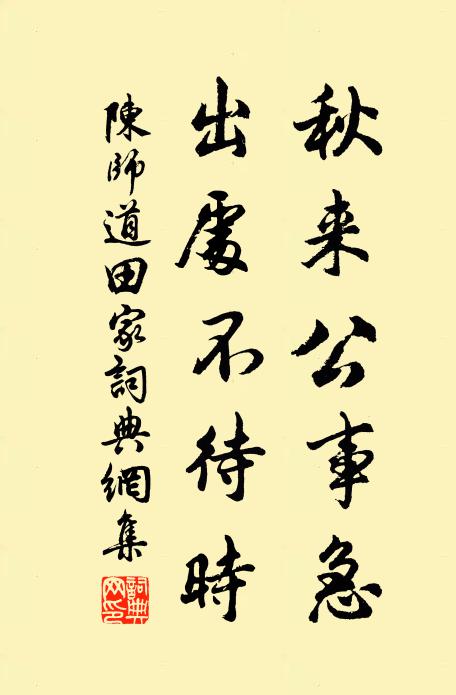 秋来公事急
出處不待時
陳師道田家詞典網集
詞典網印